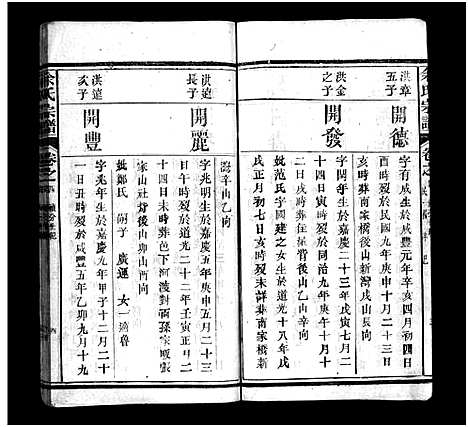 余氏宗譜
洪章五子
開德
字有成生於咸豐元年辛亥四月初四日
酉時歿於民國九年庚申
亥時葬南家橋後山新灣戌山辰向
洪金之子
開發
字
生於嘉慶二十三年戊寅七月二
十四日寅時歿於同治九年庚午十月十
二日戌時葬住屋背後山乙山辛向
妣范氏字國建之女生於道光十八年戊
戌正月初七日亥時歿未詳葬南家橋新
灣辛山乙向
洪遠長子
開麗
字兆明生於嘉慶五年庚申五月二十三
日午時歿於道光二十二年壬寅正月二
十四日未時葬下
河波對面孫家畈張
家山社背後山卯山酉向
洪遠次子
開豐
字兆年生於嘉慶九年甲子十二月二十
一日丑時歿於咸豐五年乙卯九月十九
妣鄭氏
嗣子
廣運
女一適魯
余氏宗譜
卷之